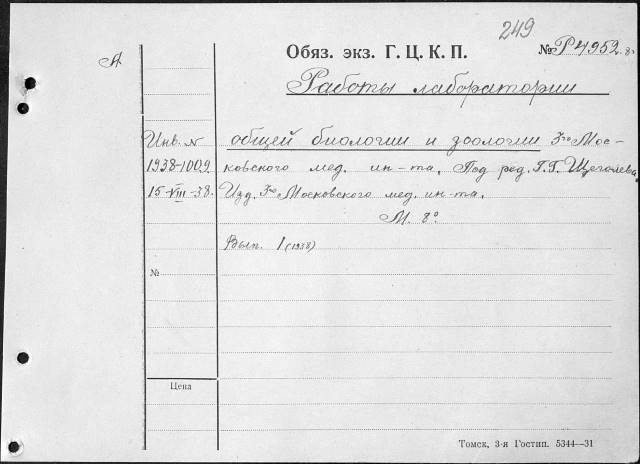 249
Обяз. экз. Г. Ц. К. П. № Р4952.8º
А
Работы лаборатории
Инв. N общей биологии и зоологии 3го Мос-
1938-1009. ковского мед. ин-та. Под ред. Г.Г. Щеголева.
15-VIII-38. Изд. 3го Московского мед. ин-та.
М. 8º
Вып. 1 (1938)
№
Цена
Томск, 3-я Гостип. 5344—31